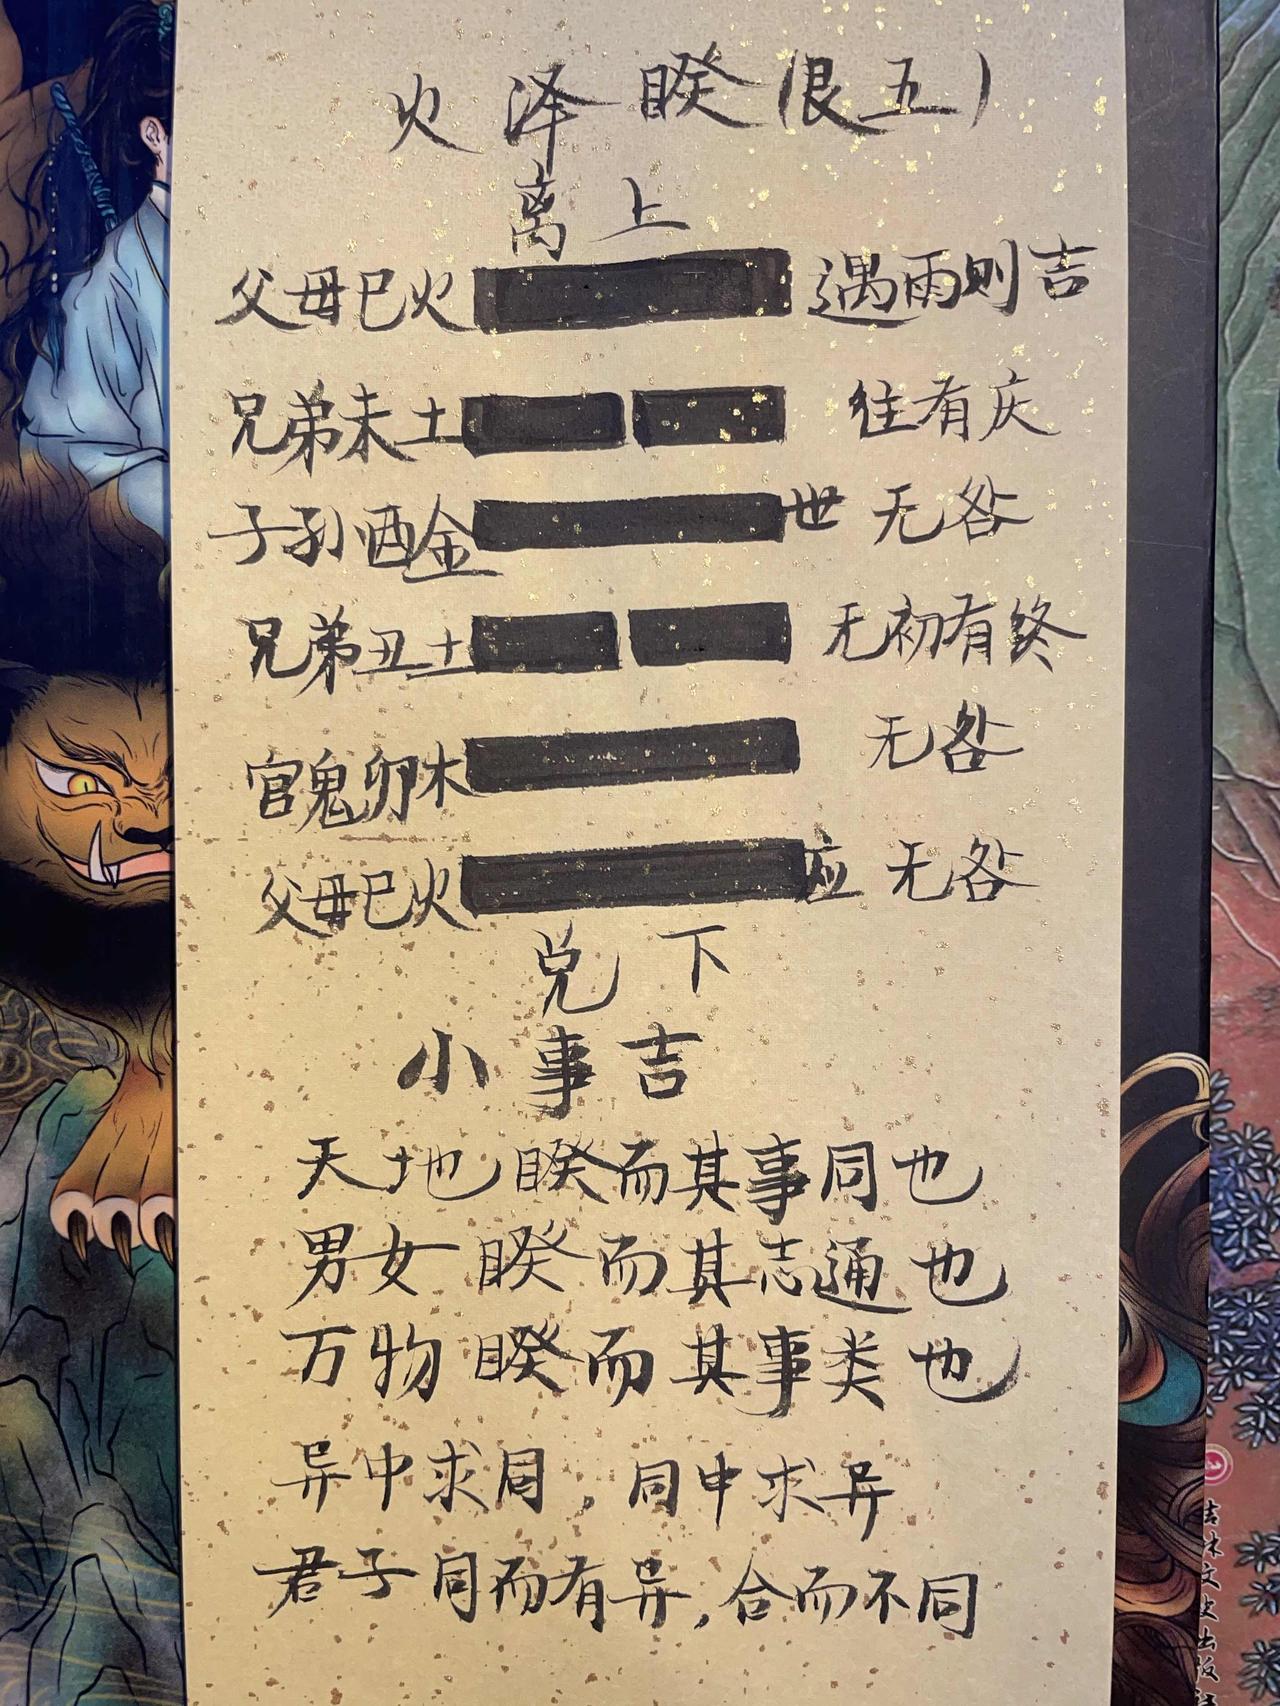 火泽睽(艮五)
离上
父母巳火 遇雨则吉
兄弟未土 往有庆
子孙酉金 世 无咎
兄弟丑土 无初有终
官鬼卯木 无咎
父母巳火 应 无咎
兑下
小事吉
天地睽而其事同也
男女睽而其志通也
万物睽而其事类也
异中求同，同中求异
君子同而有异，合而不同
吉林文史出版社